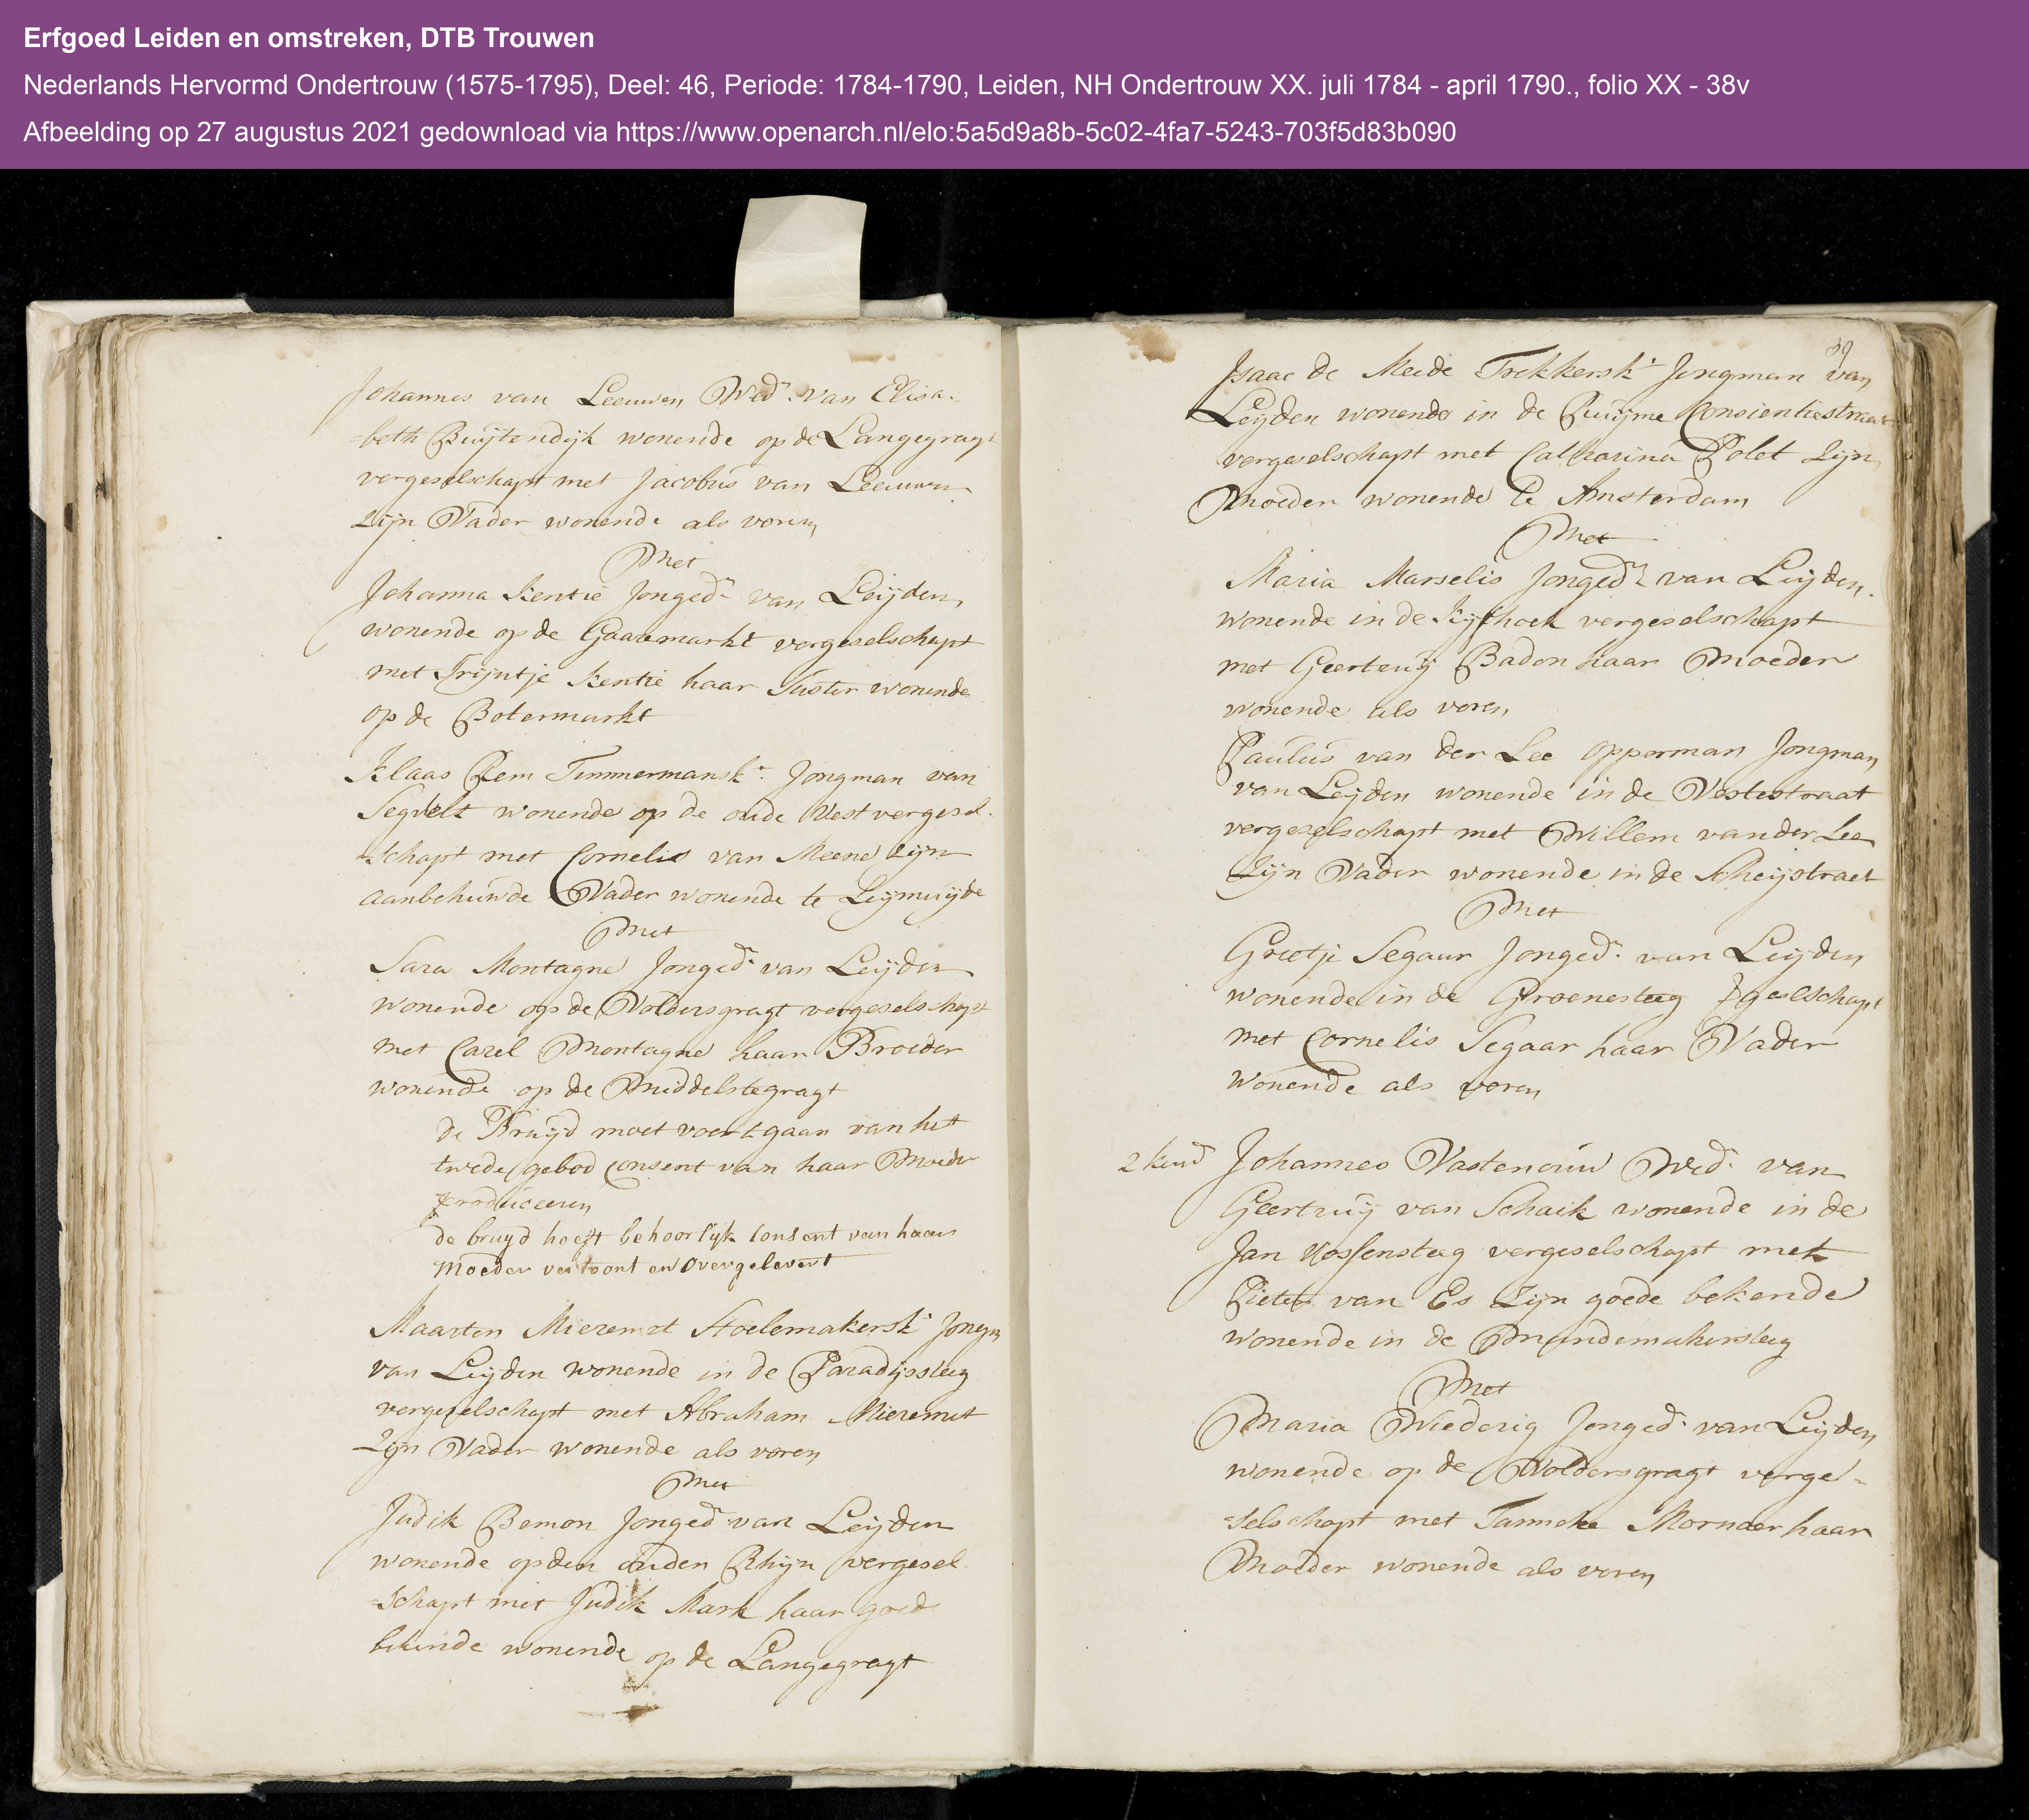 Erfgoed Leiden en omstreken, DTB Trouwen
Nederlands Hervormd Ondertrouw (1575-1795), Deel: 46, Periode: 1784-1790, Leiden, NH Ondertrouw XX. juli 1784 - april 1790., folio XX - 38v
Afbeelding op 27 augustus 2021 gedownload via https://www.openarch.nl/elo:5a5d9a8b-5c02-4fa7-5243-703f5d83b090
Johannes van Leeuwen Wedr. van Elisa-
=beth Buijtendijk wonende op de Langegragt
vergeselschapt met Jacobus van Leeuwen
Zijn Vader wonende als voren
Met
Johanna Kentie Jongedr van Leijden
wonende op de Gaaremarkt vergeselschapt
met Trijntje Kentie haar Suster wonende
op de Botermarkt
Klaas Rem Timmermanskt. Jongman van
Segvelt wonende op de oude Vest vergesel-
=schapt met Cornelis van Meene Zijn
aanbehuwde Vader wonende te Leijmuijde
Met
Sara Montagne Jongedr. van Leijden
wonende op de Voldersgragt vergeselschapt
met Carel Montagne haar Broeder
wonende op de Middelstegragt
de Bruijd moet voortgaan van het
twede gebod Consent van haar Moeder
produceeren
de bruyd heeft behoorlyk Consent van haar
Moeder vertoont en overgelevert
Maarten Mieremet Stoelemakerskt Jongm
van Leijden wonende in de Paradijssteeg
vergeselschapt met Abraham Mieremet
Zijn Vader wonende als voren
Met
Judik Bemon Jongedr van Leijden
wonende op den ouden Rhijn vergesel
=schapt met Judik Mark haar goede
bekende wonende op de Langegragt
39
Isaac de Meede Trekkerskt Jongman van
Leijden wonende in de Ruijme Consientiestraat
vergeselschapt met Catharina Polet Zijn
Moeder wonende te Amsterdam
Met
Maria Marselis Jongedr van Leijden
wonende in de Kijfhoek vergeselschapt
met Geertruij Badon haar Moeder
wonende als voren
Paulus van der Lee opperman Jongman
van Leijden wonende in de Vestestraat
vergeselschapt met Willem van der Lee
Zijn Vader wonende in de Scheijstraet
Met
Grietje Segaar Jongedr. van Leijden
wonende in de Groenesteeg geselschapt
met Cornelis Segaar haar Vader
wonende als voren
2 kind Johannes Vastenouw Wedr. van
Geertruij van Schaik wonende in de
Jan Vossensteeg vergeselschapt met
Pieter van Es Zijn goede bekende
wonende in de Mandemakersteeg
Met
Maria Wiederig Jongedr. van Leijden
wonende op de Voldersgragt verge-
=selschapt met Tanneke Mornaer haar
Moeder wonende als voren